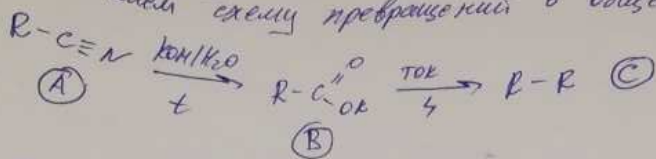 схему превращений в обще
R-C≡N KOH/H₂O t R-C=O OK ток 4 R-R Ⓒ
Ⓐ
Ⓑ